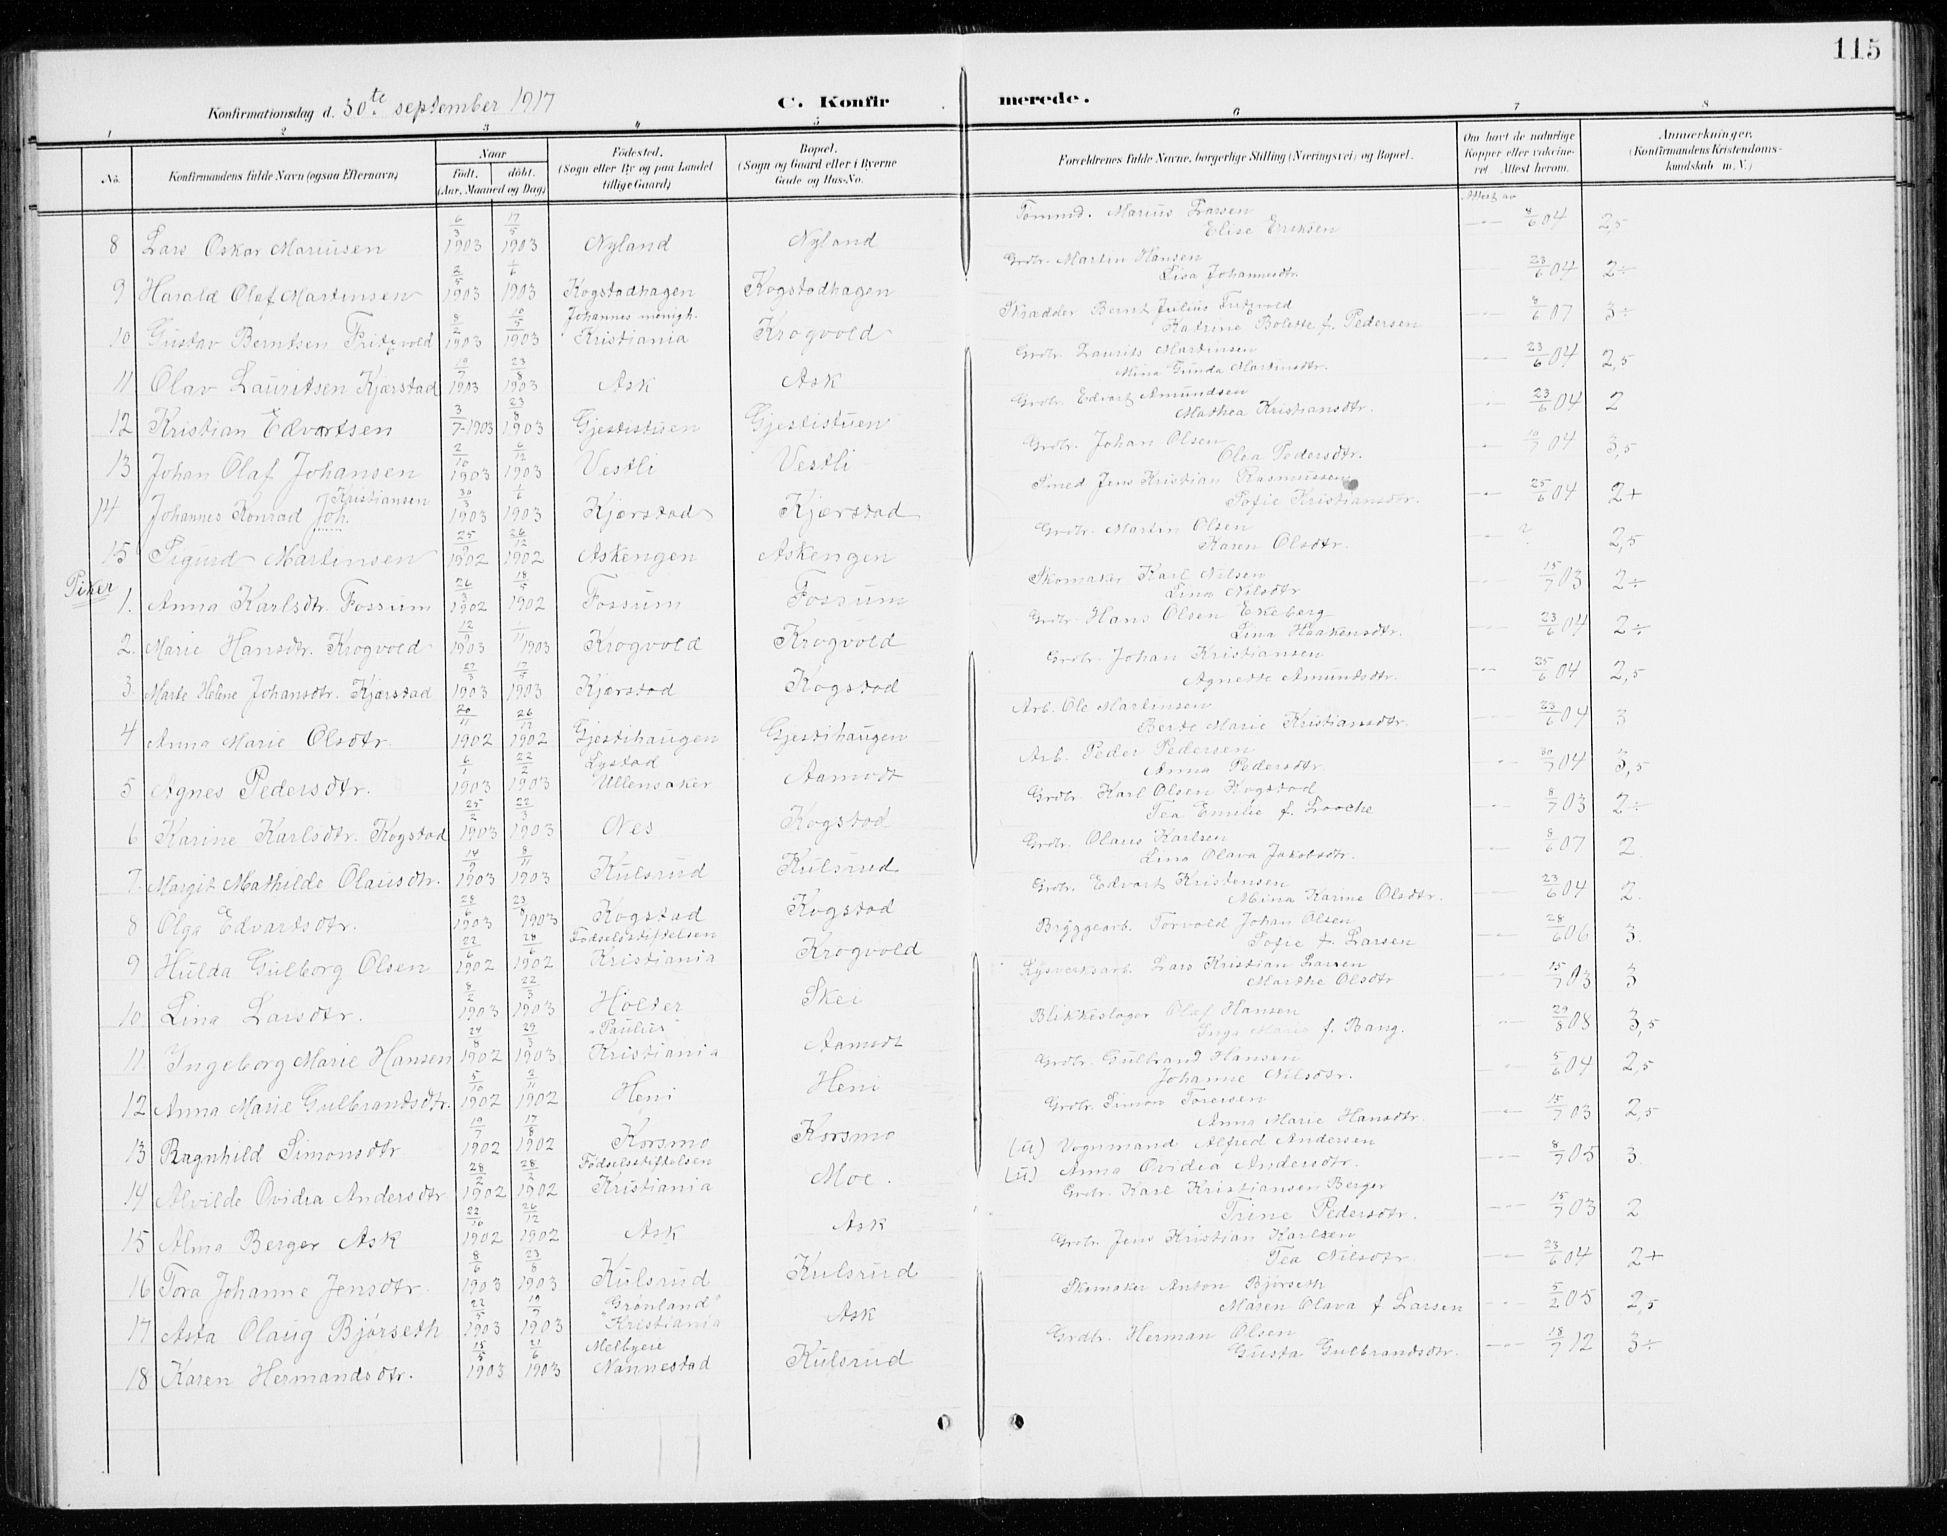 115
Konfirmationsdag d. 30te september 1917
C. Konfirmerede.
1 2 3 4 5 6 7 8
No. | Konfirmandens fulde Navn (ogsaa Efternavn) | Naar Født. døbt. (Aar, Maaned og Dag) | Fødested. (Sogn eller By og paa Landet tillige Gaard) | Bopæl. (Sogn og Gaard eller i Byerne Gade og Hus-No. | Forældrenes fulde Navne, borgerlige Stilling (Næringsvei) og Bopæl. | Om havt de naturlige Kopper eller vakcineret Attest herom. | Anmærkninger. (Konfirmandens Kristendomskundskab m. V.)
Attest av
8 Lars Oskar Mariusen 6/3 1903 17/5 1903 Nyland Nyland Tømmd. Marius Larsen Elise Eriksen -"- 8/6 04 2,5
9 Harald Olaf Martinsen 2/5 1903 1/6 1903 Kogstadhagen Kogstadhagen Grdbr. Martin Hansen Lisa Johannesdtr. -"- 23/6 04 2÷
10 Gustav Berntsen Fritzvold 8/2 1903 10/5 1903 Johannes menigh. Kristiania Krogvold Skrædder Bernt Julius Fritzvold Katrine Bolette f. Pedersen -"- 8/6 07 3÷
11 Olav Lauritsen Kjærstad 19/7 1903 23/8 1903 Ask Ask Grdbr. Laurits Martinsen Mina Gunda Martinsdtr. -"- 23/6 04 2,5
12 Kristian Edvartsen 3/7-1903 23/8 1903 Gjestistuen Gjestistuen Grdbr. Edvart Amundsen Mathea Kristiansdtr. -"- 23/6 04 2
13 Johan Olaf Johansen 2/10 1903 6/12 1903 Vestli Vestli Grdbr. Johan Olsen Olea Pedersdtr. -"- 10/7 04 3,5
14 Johannes Konrad Joh. Kristiansen 30/3 1903 1/6 1903 Kjærstad Kjærstad Smed Jens Kristian Rasmussen Sofie Kristiansdtr. -"- 25/6 04 2+
15 Sigurd Martinsen 25/9 1902 26/12 1902 Askengen Askengen Grdbr. Martin Olsen Karen Olsdtr. -"- ? 2,5
Piker
1. Anna Karlsdtr. Fossum 26/3 1902 18/5 1902 Fossum Fossum Skomaker Karl Nilsen Lina Nilsdtr -"- 15/7 03 2÷
2. Marie Hansdtr. Krogvold 12/9 1903 1/11 1903 Krogvold Krogvold Grdbr. Hans Olsen Ekeberg Lina Haakensdtr. -"- 23/6 04 2÷
3. Marte Helene Johansdtr. Kjærstad 27/3 1903 17/5 1903 Kjærstad Kogstad Grdbr. Johan Kristiansen Agnette Amundsdtr. -"- 25/6 04 2,5
4 Anna Marie Olsdtr. 20/11 1902 26/12 1902 Gjestihaugen Gjestihaugen Arb. Ole Martinsen Berte Marie Kristiansdtr. -"- 23/6 04 3
5 Agnes Pedersdtr. 6/1 1903 22/2 1903 Lystad Ullensaker Aamodt Arb. Peder Pedersen Anna Pedersdtr. -"- 30/7 04 3,5
6 Karine Karlsdtr. Kogstad 25/2 1903 22/3 1903 Nes Kogstad Grdbr. Karl Olsen Kogstad Tea Emilie f. Looche -"- 8/7 03 2÷
7. Margit Mathilde Olausdtr. 14/9 1903 8/11 1903 Kulsrud Kulsrud Grdbr. Olaus Karlsen Lina Olava Jakobsdtr. -"- 8/6 07 2.
8 Olga Edvartsdtr. 28/6 1903 23/8 1903 Kogstad Kogstad Grdbr. Edvart Kristensen Mina Karine Olsdtr. -"- 23/6 04 2.
9 Hulda Gulborg Olsen 22/6 1902 28/6 1902 Fødselsstiftelsen Kristiania Krogvold Bryggearb. Torvald Johan Olsen Sofie f. Larsen -"- 28/6 06 3.
10. Lina Larsdtr. 8/2 1903 22/3 1903 Holter Skei Lysverksarb. Lars Kristian Larsen Marthe Olsdtr -"- 15/7 03 3
11. Ingeborg Marie Hansen 24/8 1902 29/3 1903 "Paulus" Kristiania Aamodt Blikkeslager Olaf Hansen Inga Marie f. Bang. -"- 29/8 08 3,5
12 Anna Marie Gulbrandsdtr. 5/10 1902 2/11 1902 Heni Heni Grdbr. Gulbrand Hansen Johanne Nilsdtr. -"- 5/6 04 2,5
13 Ragnhild Simonsdtr 19/7 1902 17/8 1902 Korsmo Korsmo Grdbr. Simon Toresen Anna Marie Hansdtr. -"- 15/7 03 2,5
14 Alvilde Ovidia Andersdtr 28/2 1902 28/2 1902 Fødselsstiftelsen Kristiania Moe. (u) Vognmand Alfred Andersen (u) Anna Ovidia Andersdtr. -"- 8/7 05 3.
15 Alma Berger Ask 22/10 1902 26/12 1902 Ask Ask Grdbr. Karl Kristiansen Berger Trine Pedersdtr. -"- 15/7 03 2
16 Tora Johanne Jensdtr. 8/6 1903 23/8 1903 Kulsrud Kulsrud Grdbr. Jens Kristian Karlsen Tea Nilsdtr. -"- 23/6 04 2+
17 Asta Olaug Bjørseth 22/5 1903 19/7 1903 "Grønland" Kristiania Ask Skomaker Anton Bjørseth Maren Olava f Larsen -"- 5/2 05 2,5
18 Karen Hermandsdtr. 15/5 1903 21/6 1903 Melbyeie Nannestad Kulsrud Grdbr. Herman Olsen Gusta Gulbrandsdtr. -"- 18/7 12 3÷